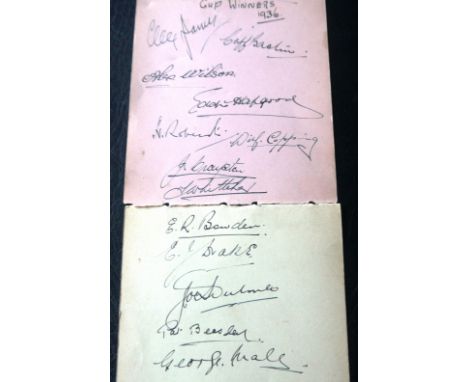 CUP WINNERS
1936
Alex James
Cliff Bastin
Alex Wilson
Eddie Hapgood
H. Roberts
Wilf. Copping
J. Crayston
T Whittaker
E.R. Bowden.
E. J Drake
Joe Hulme
Pat Beasley
George Male